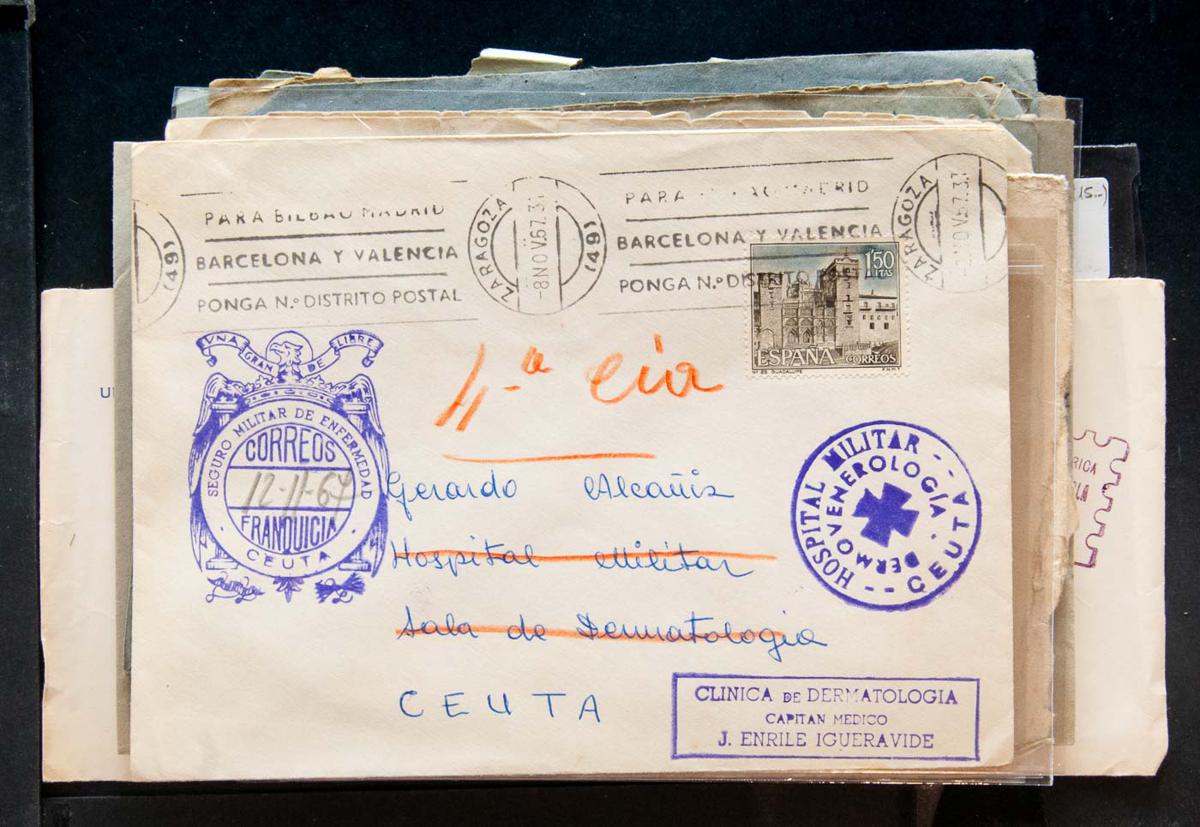 PARA BILBAO MADRID
BARCELONA Y VALENCIA
PONGA N.º DISTRITO POSTAL
(49)
ZARAGOZA
-8NOV.67.3
(49)
PARA MADRID
BARCELONA Y VALENCIA
PONGA N.º DISTRITO
ZARAGOZA
1'50
PTAS
ESPAÑA CORREOS
Nº 25 GUADALUPE F.N.M.T.
15--)
VNA GRANDE LIBRE
SEGURO MILITAR DE ENFERMEDAD
CORREOS
12-11-67
FRANQUICIA
· CEUTA ·
4-ª cia
Gerardo Alcañiz
Hospital Militar
Sala de Dermatologia
CEUTA
HOSPITAL MILITAR -- CEUTA --
DERMOVENEROLOGÍA -
CLINICA DE DERMATOLOGIA
CAPITAN MEDICO
J. ENRILE IGUERAVIDE
U
RICA